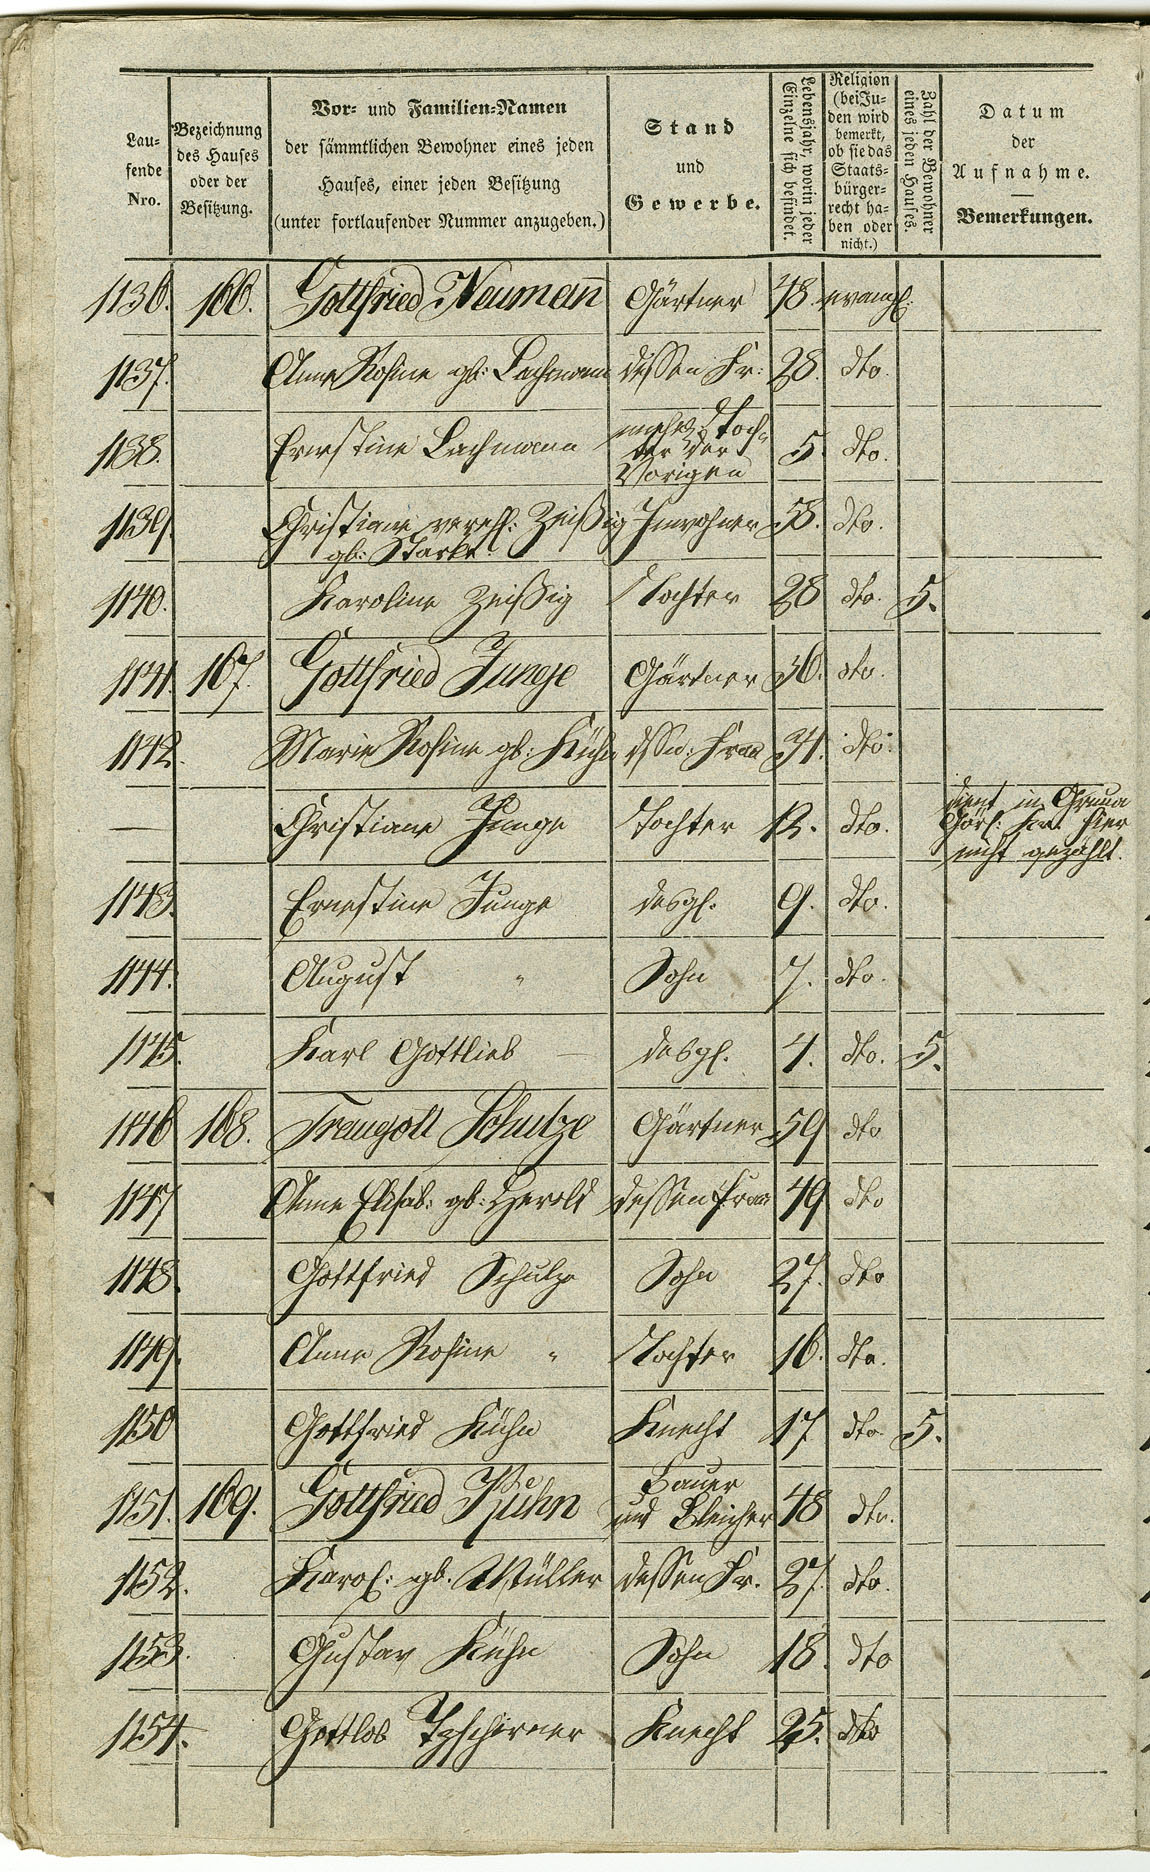 Laufende Nro.
Bezeichnung des Hauses oder der Besitzung.
Vor- und Familien-Namen
der sämmtlichen Bewohner eines jeden
Hauses, einer jeden Besitzung
(unter fortlaufender Nummer anzugeben.)
Stand
und
Gewerbe.
Lebensjahr, worin jeder Einzelne sich befindet.
Religion (bei Juden wird bemerkt, ob sie das Staatsbürgerrecht haben oder nicht.)
Zahl der Bewohner eines jeden Hauses.
Datum
der
Aufnahme.
Bemerkungen.
1136. 166. Gottfried Neumann Gärtner 48. evangl:
1137. Anne Rosine gb: Lachmann dessen Fr: 28. dto.
1138. Ernestine Lachmann Toch-
ter der
Vorigen 5. dto.
1139. Christiane verehl: Zeißig Inwohner 58. dto.
gb: Starke.
1140. Karoline Zeißig Tochter 28 dto. 5.
1141. 167. Gottfried Junge Gärtner 36. dto.
1142. Marie Rosine gb: Kühn dssn: Frau 34. dto.
— Christiane Junge Tochter 12. dto. dient in Gruna
Görl: Kr. hier
nicht gezählt.
1143. Ernestine Junge desgl. 9. dto.
1144. August " Sohn 7. dto.
1145. Karl Gottlieb — desgl. 4. dto. 5.
1146 168. Traugott Schulze Gärtner 59 dto
1147 Anne Elisab: gb: Herold dessen Frau 49 dto
1148. Gottfried Schulze Sohn 27. dto
1149. Anne Rosine " Tochter 16. dto.
1150 Gottfried Kühn Knecht 17 dto 5.
1151. 169. Gottfried Kühn Bauer
und Bleicher 48 dto.
1152. Karol: gb. Müller dessen Fr. 27. dto.
1153. Gustav Kühn Sohn 18. dto
1154. Gottlob Tzschirner Knecht 25. dto